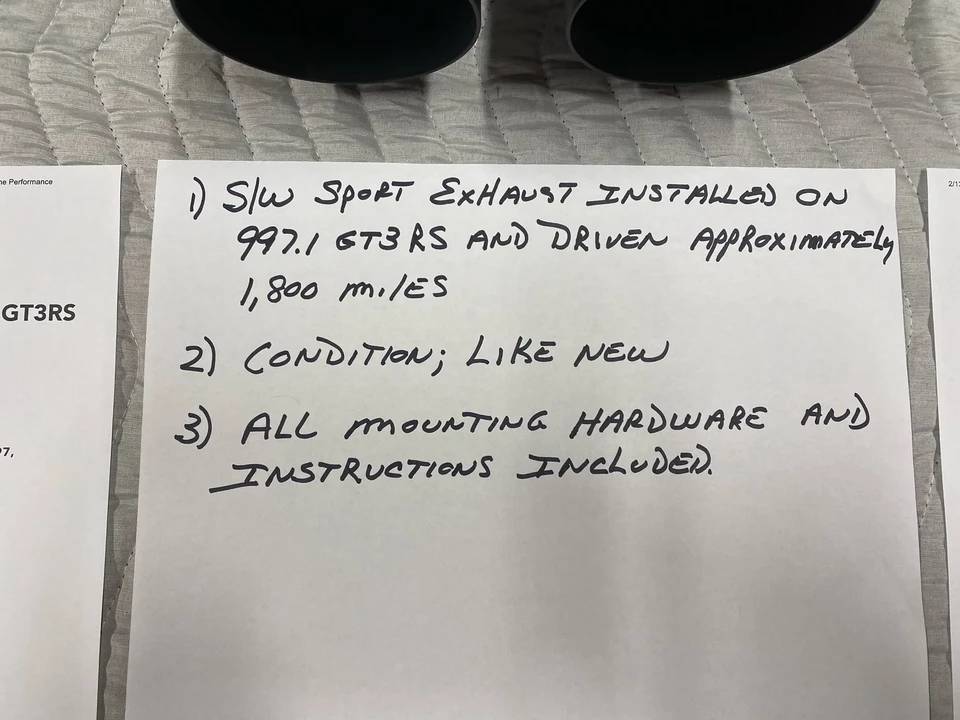 ne Performance
GT3RS
97,
1) S/W SPORT EXHAUST INSTALLED ON
997.1 GT3 RS AND DRIVEN APPROXIMATELY
1,800 miles
2) CONDITION; LIKE NEW
3) ALL MOUNTING HARDWARE AND
INSTRUCTIONS INCLUDED.